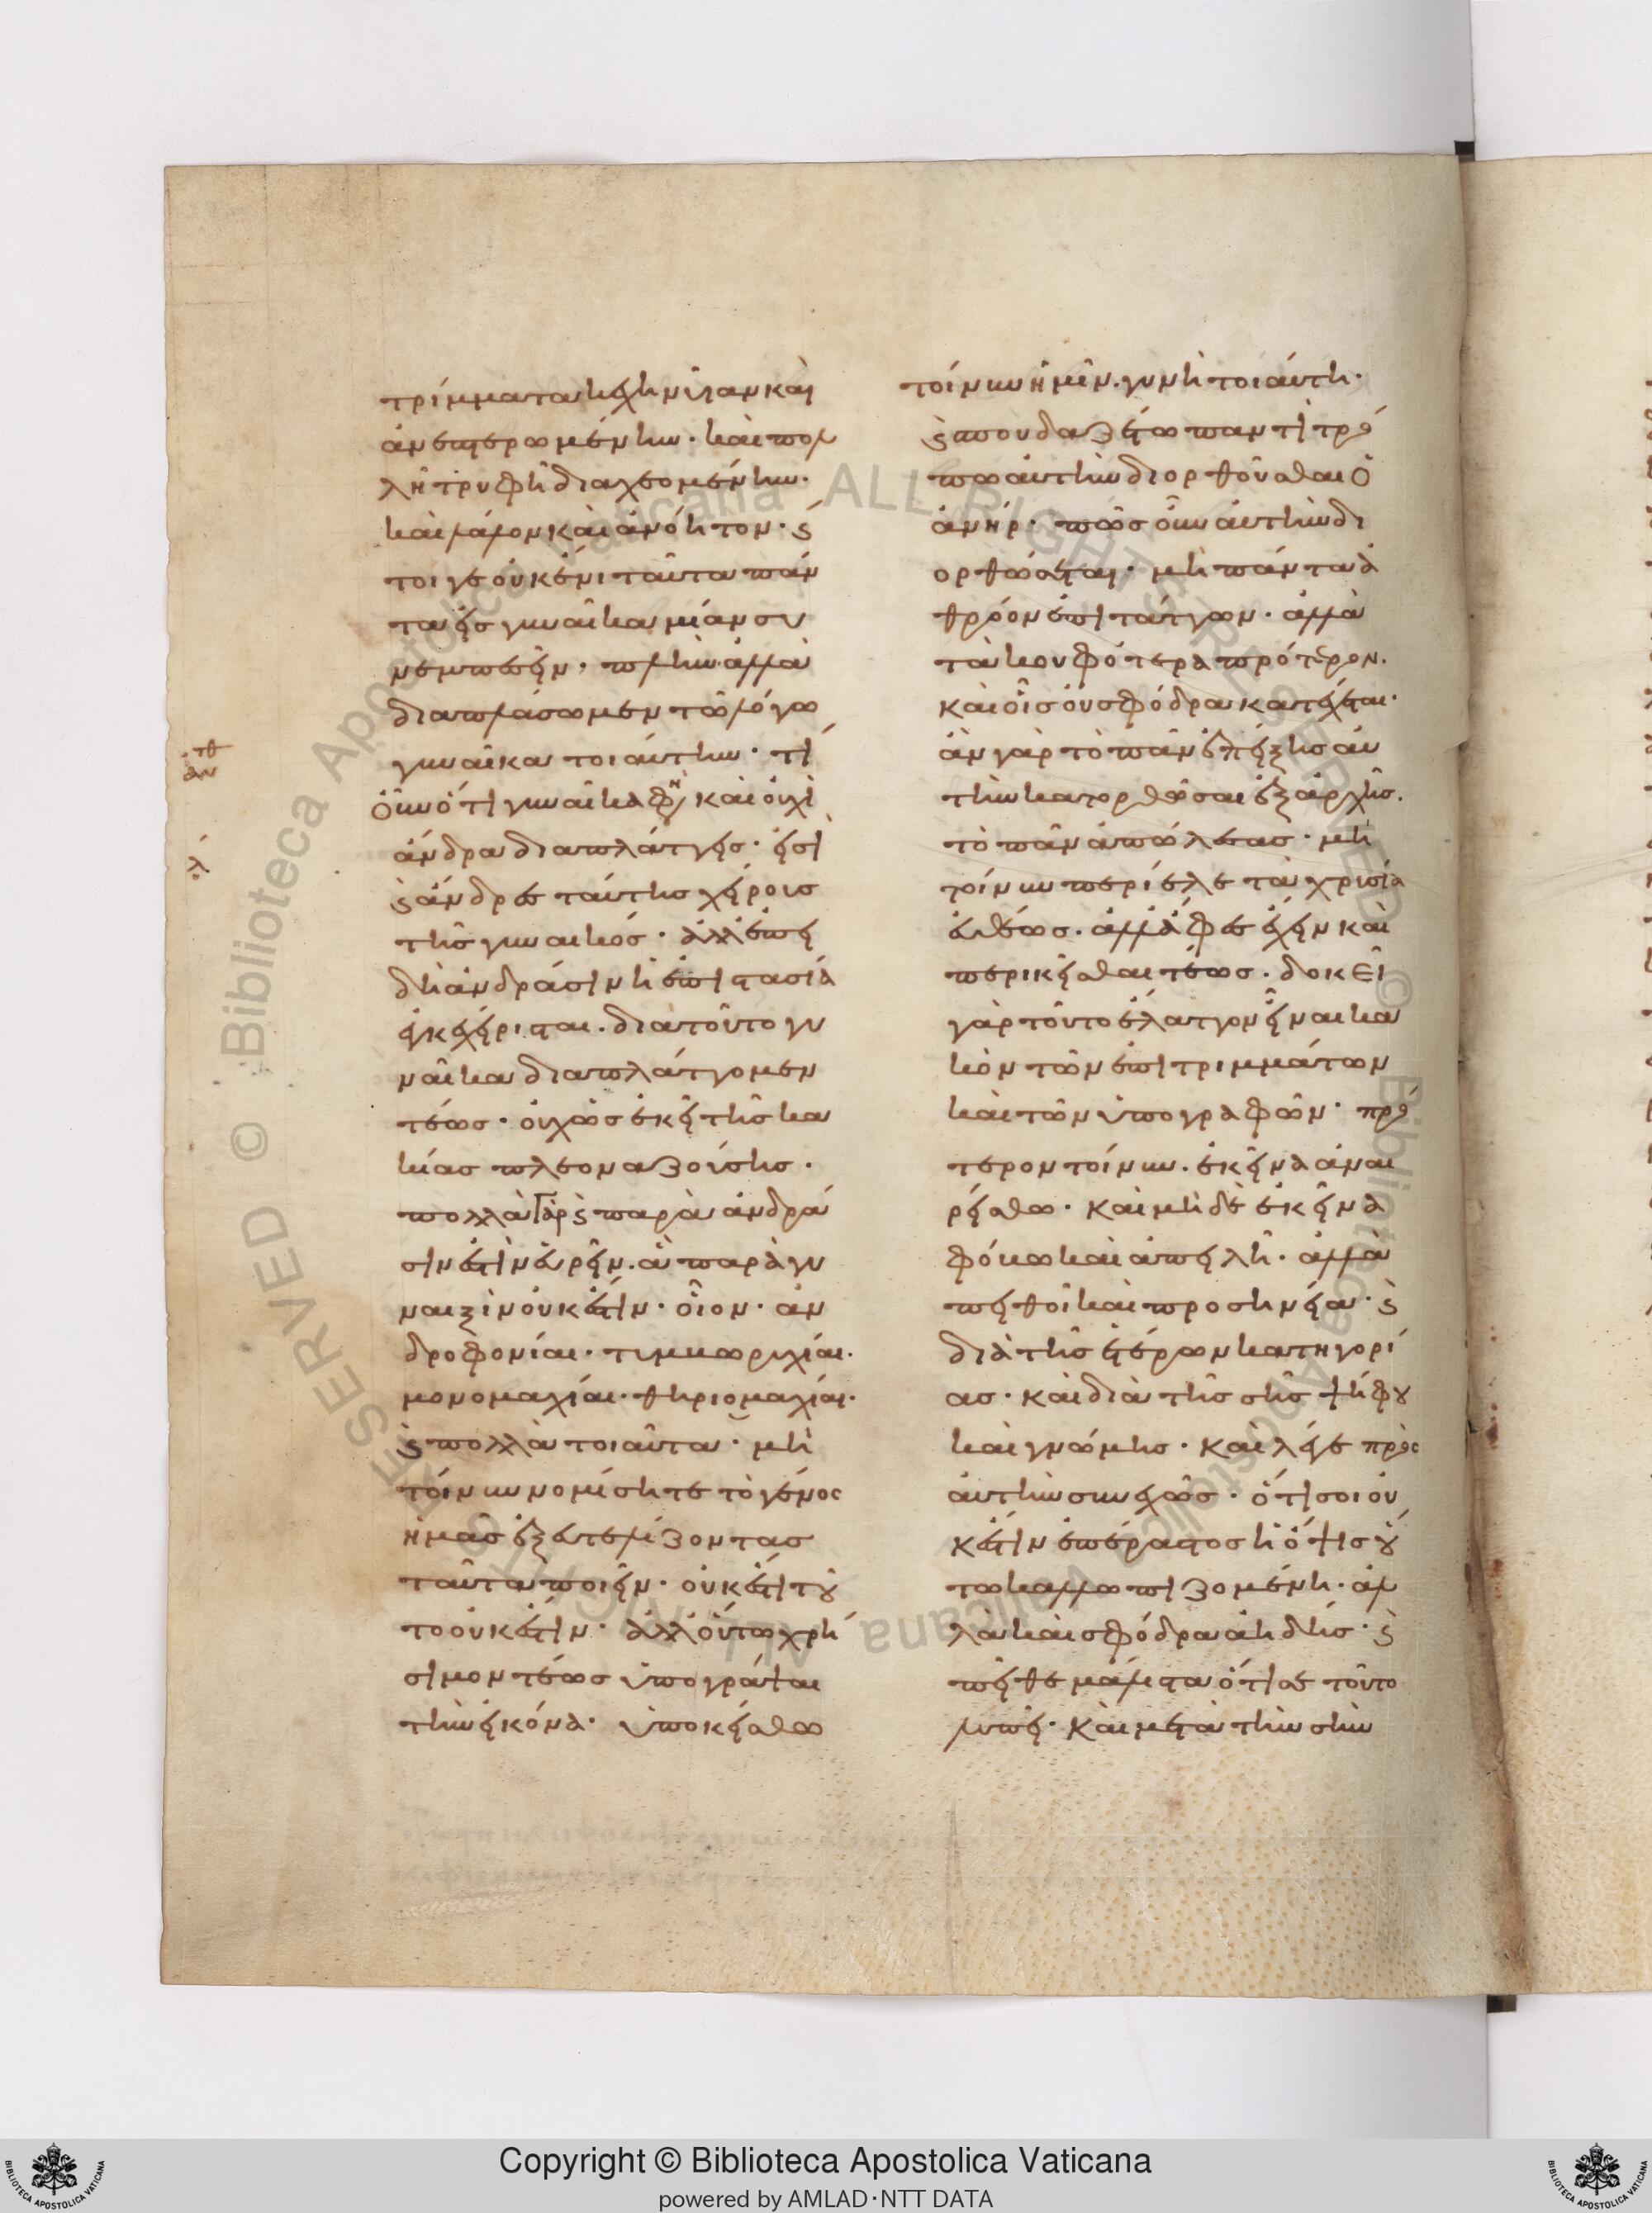 τρίμματα ἡ χληνίδαν καὶ
ἀνεπτερωμένην. καὶ πολ
λῆ τρυφῆ διαχεομένην.
καὶ λάλον καὶ ἀνόητον. εἰ
τοί γε οὐκ ἔνι ταῦτα πάν
τα εἰς γυναῖκα μίαν συ
νεμπεσεῖν, πλὴν ἀλλὰ
διαπλάσωμεν τῶ λόγω
γυναῖκα τοιαύτην. τί
οὖν ὅτι γυναῖκα φη καὶ οὐχὶ
ἄνδρα διαπλάττεις. εἰσὶ
καὶ ἄνδρες ταύτης χείρους
τῆς γυναικός. ἀλλ ἐπει
δὴ ἀνδράσιν ἡ ἐπιστασία
ἐγκεχείρισται. διατοῦτο γυ
ναῖκα διαπλάττομεν
τέως. οὐχ ὡς ἐκεῖ τῆς κα
κίας πλεοναζούσης.
πολλὰ γὰρ καὶ παρὰ ἀνδρά
σιν ἐστὶν εὑρεῖν. ἃ παρὰ γυ
ναιξὶν οὐκ ἔστιν. οἷον. ἀν
δροφονίαι. τυμβωρυχίαι.
μονομαχίαι. θηριομαχίαι.
καὶ πολλὰ τοιαῦτα. μὴ
τοίνυν νομίσητε τὸ γένος
ἡμᾶς ἐξευτελίζοντας
ταῦτα ποιεῖν. οὐκ ἔστι τοῦ
το οὐκ ἔστιν. ἀλλ οὕτω χρή
σιμον τέως ὑπογράψαι
τὴν εἰκόνα. ὑποκείσθω
τοίνυν ἡμῖν. γυνὴ τοιαύτη.
καὶ σπουδαζέτω παντὶ τρό
πω αὐτὴν διορθοῦσθαι ὁ
ἀνήρ. πῶς οὖν αὐτὴν δι
ορθώσεται. μὴ πάντα ἀ
θρόον ἐπιτάττων. ἀλλὰ
τὰ κουφότερα πρότερον.
καὶ οἷς οὐ σφόδρα κατέχεται.
ἂν γὰρ τὸ πᾶν ἐπείξης αὐ
τὴν κατορθῶσαι ἐξ ἀρχῆς.
τὸ πᾶν ἀπώλεσας. μὴ
τοίνυν περιέλε τὰ χρυσία
εὐθέως. ἀλλ ἄφες ἔχειν καὶ
περικεῖσθαι τέως. δοκεῖ
γὰρ τοῦτο ἔλαττον εἶναι κα
κὸν τῶν ἐπιτριμμάτων
καὶ τῶν ὑπογραφῶν. πρό
τερον τοίνυν. ἐκεῖνα ἀναι
ρείσθω. καὶ μὴ δὲ ἐκεῖνα
φόβω καὶ ἀπειλῆ. ἀλλὰ
πειθοῖ καὶ προσηνεία. καὶ
διὰ τῆς ἑτέρων κατηγορί
ας. καὶ διὰ τῆς σῆς ψήφου
καὶ γνώμης. καὶ λέγε πρὸς
αὐτὴν συνεχῶς. ὅτι σοι οὐ
κ ἔστιν ἐπέραστος ἡ ὄψις οὕ
τω καλλωπιζομένη. ἀλ
λὰ καὶ σφόδρα ἀηδής. καὶ
πεῖθε μάλιστα ὅτι σε τοῦτο
λυπεῖ. καὶ μετὰ τὴν σὴν